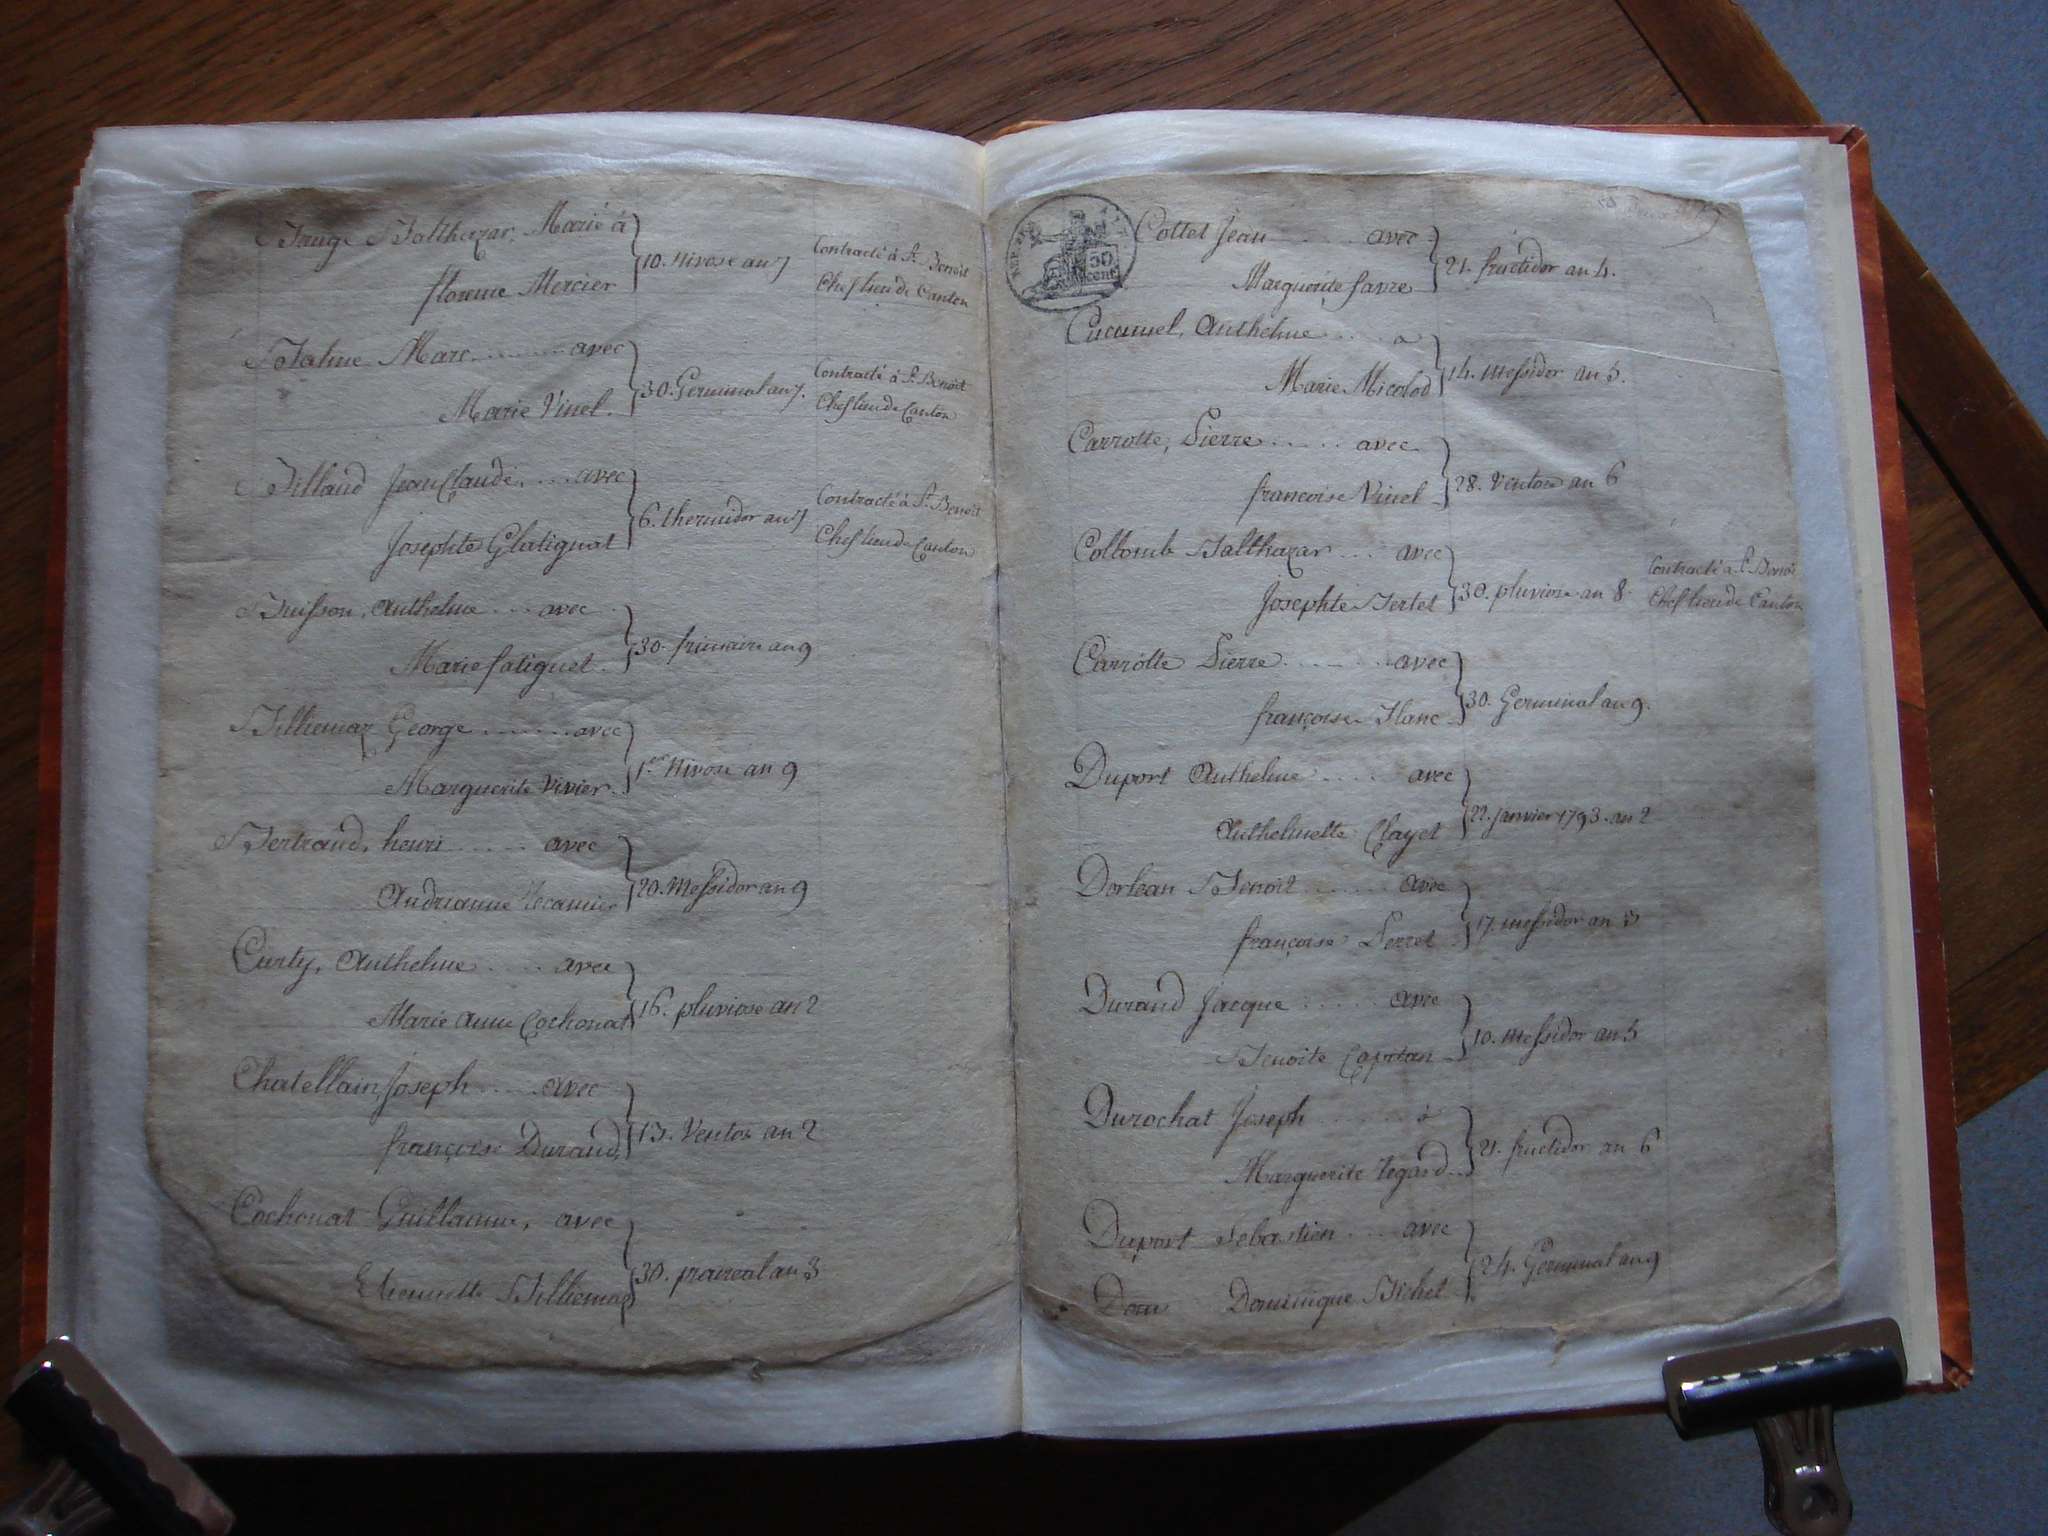 Bauge Balthazar, Marié à
florence Mercier
10. Nivose an 7
Contracté à St. Benoit
Chef lieu de Canton
Balme Marc ........ avec
Marie Vinel.
30. Germinal an 7.
Contracté à St. Benoit
Chef lieu de Canton
Billiaud Jean Claude, ... avec
Josephte Glatignat
6. thermidor an 7
Contracté à St. Benoit
Chef lieu de Canton
Buisson, Anthelme .... avec
Marie fatiguet.
30. frimaire an 9
Billiemaz George ........ avec
Marguerite Vivier.
1er Nivose an 9
Bertrand, henri ..... avec
Andrianne Recamier
20. Messidor an 9
Curty, Anthelme .... avec
Marie Anne Cochonat
16. pluviose an 2
Chatellain, Joseph .... avec
françoise Durand,
13. Ventos an 2
Cochonat Guillaume, avec
Billiemaz
30. praireal an 3
50
cent
Cottet Jean ..... avec
Marguerite favre
21. fructidor an 4.
Cucumel, Anthelme .... a
Marie Micolod
14. Messidor an 5.
Carrotte, Pierre ..... avec
francoise Vinel
28. Ventose an 6
Collomb Balthazar ... avec
Josephte Bertet
30. pluviose an 8
Contracté à St. Benoit
Chef lieu de Canton
Carrotte Pierre ....... avec
françoise Blanc
30. Germinal an 9.
Duport Anthelme ..... avec
Anthelmette Clayet
22. Janvier 1793. an 2
Dorlean Benoit ...... avec
françoise Perret
17. messidor an 5
Durand Jacque ..... avec
Benoite Capitan
10. Messidor an 5
Durochat Joseph ...... à
Marguerite Tegard
21. fructidor an 6
Duport Sebastien ... avec
Dom Dominique Bichet
24. Germinal an 9